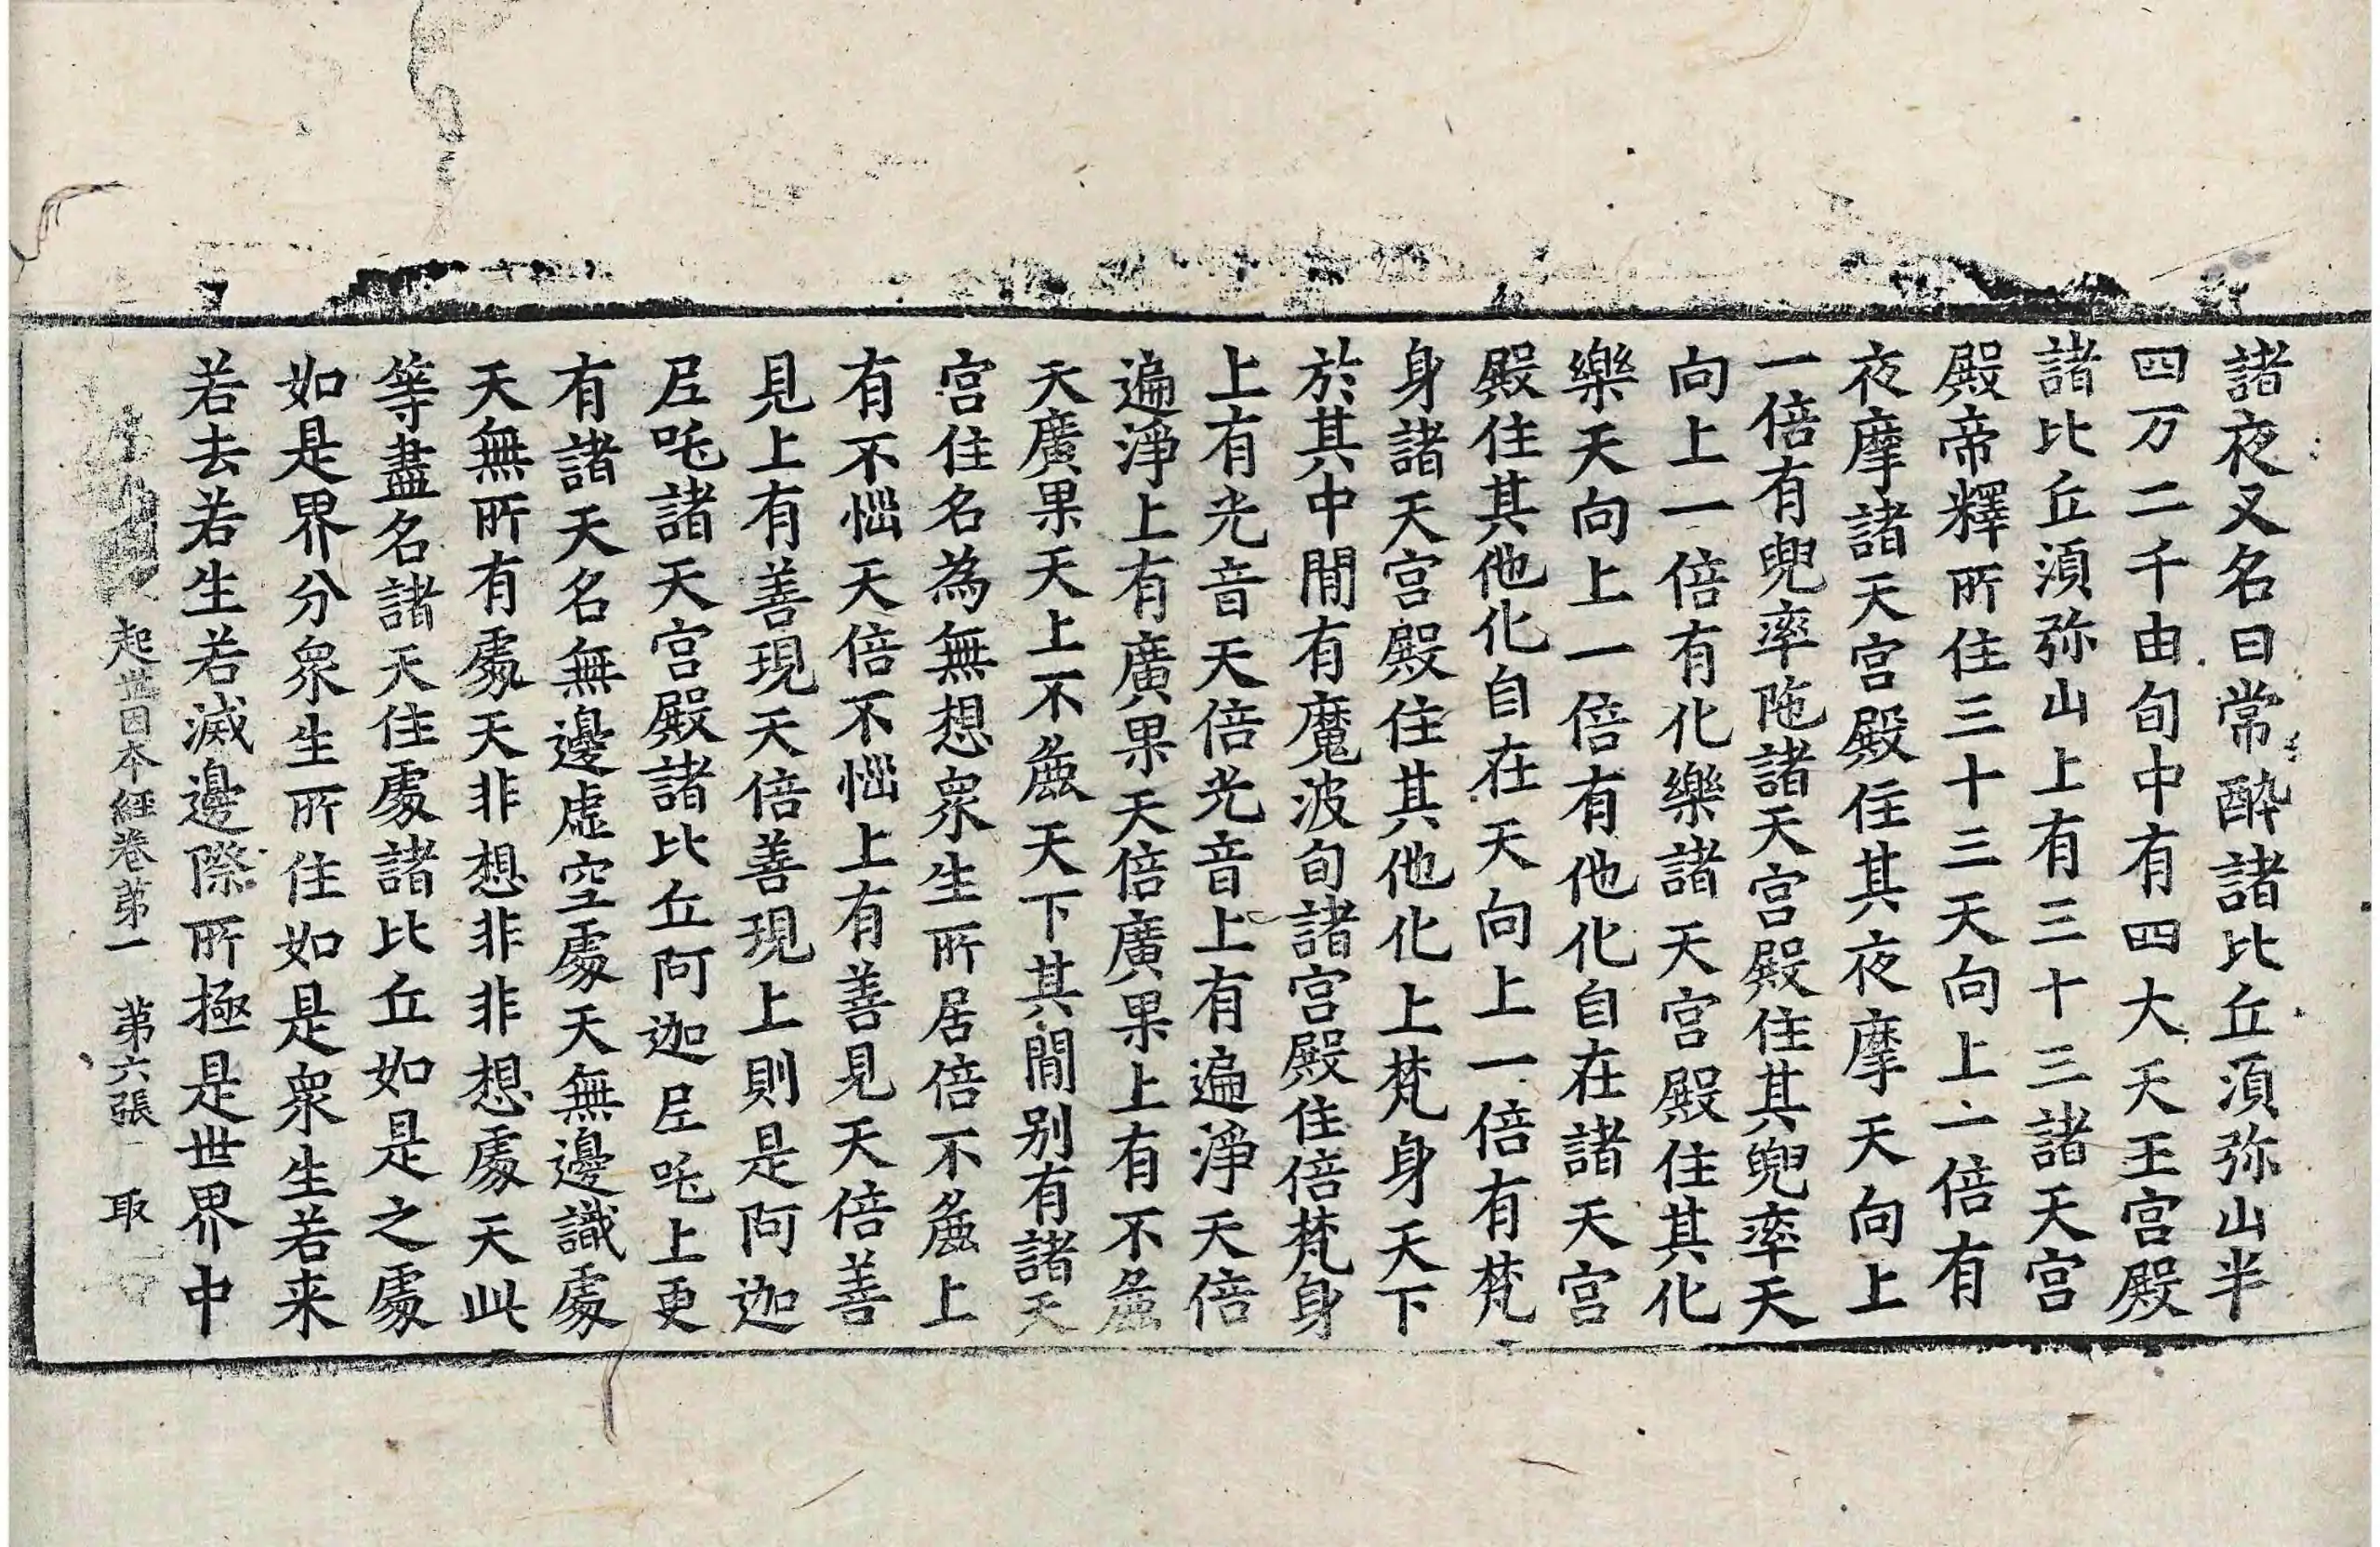 諸夜叉名曰常醉諸比丘湏弥山半
四万二千由旬中有四大天王宮殿
諸比丘湏弥山上有三十三諸天宮
殿帝釋所住三十三天向上一倍有
夜摩諸天宮殿住其夜摩天向上
一倍有兜率陁諸天宮殿住其兜率天
向上一倍有化樂諸天宮殿住其化
樂天向上一倍有他化自在諸天宮
殿住其他化自在天向上一倍有梵
身諸天宮殿住其他化上梵身天下
於其中閒有魔波旬諸宮殿住倍梵身
上有光音天倍光音上有遍淨天倍
遍淨上有廣果天倍廣果上有不麁
天廣果天上不麁天下其閒别有諸天
宮住名為無想衆生所居倍不麁上
有不惱天倍不惱上有善見天倍善
見上有善現天倍善現上則是阿迦
尼吒諸天宮殿諸比丘阿迦尼吒上更
有諸天名無邊虛空處天無邊識處
天無所有處天非想非非想處天此
等盡名諸天住處諸比丘如是之處
如是界分衆生所住如是衆生若来
若去若生若滅邊際所極是世界中
起世因本經卷第一 第六張 取